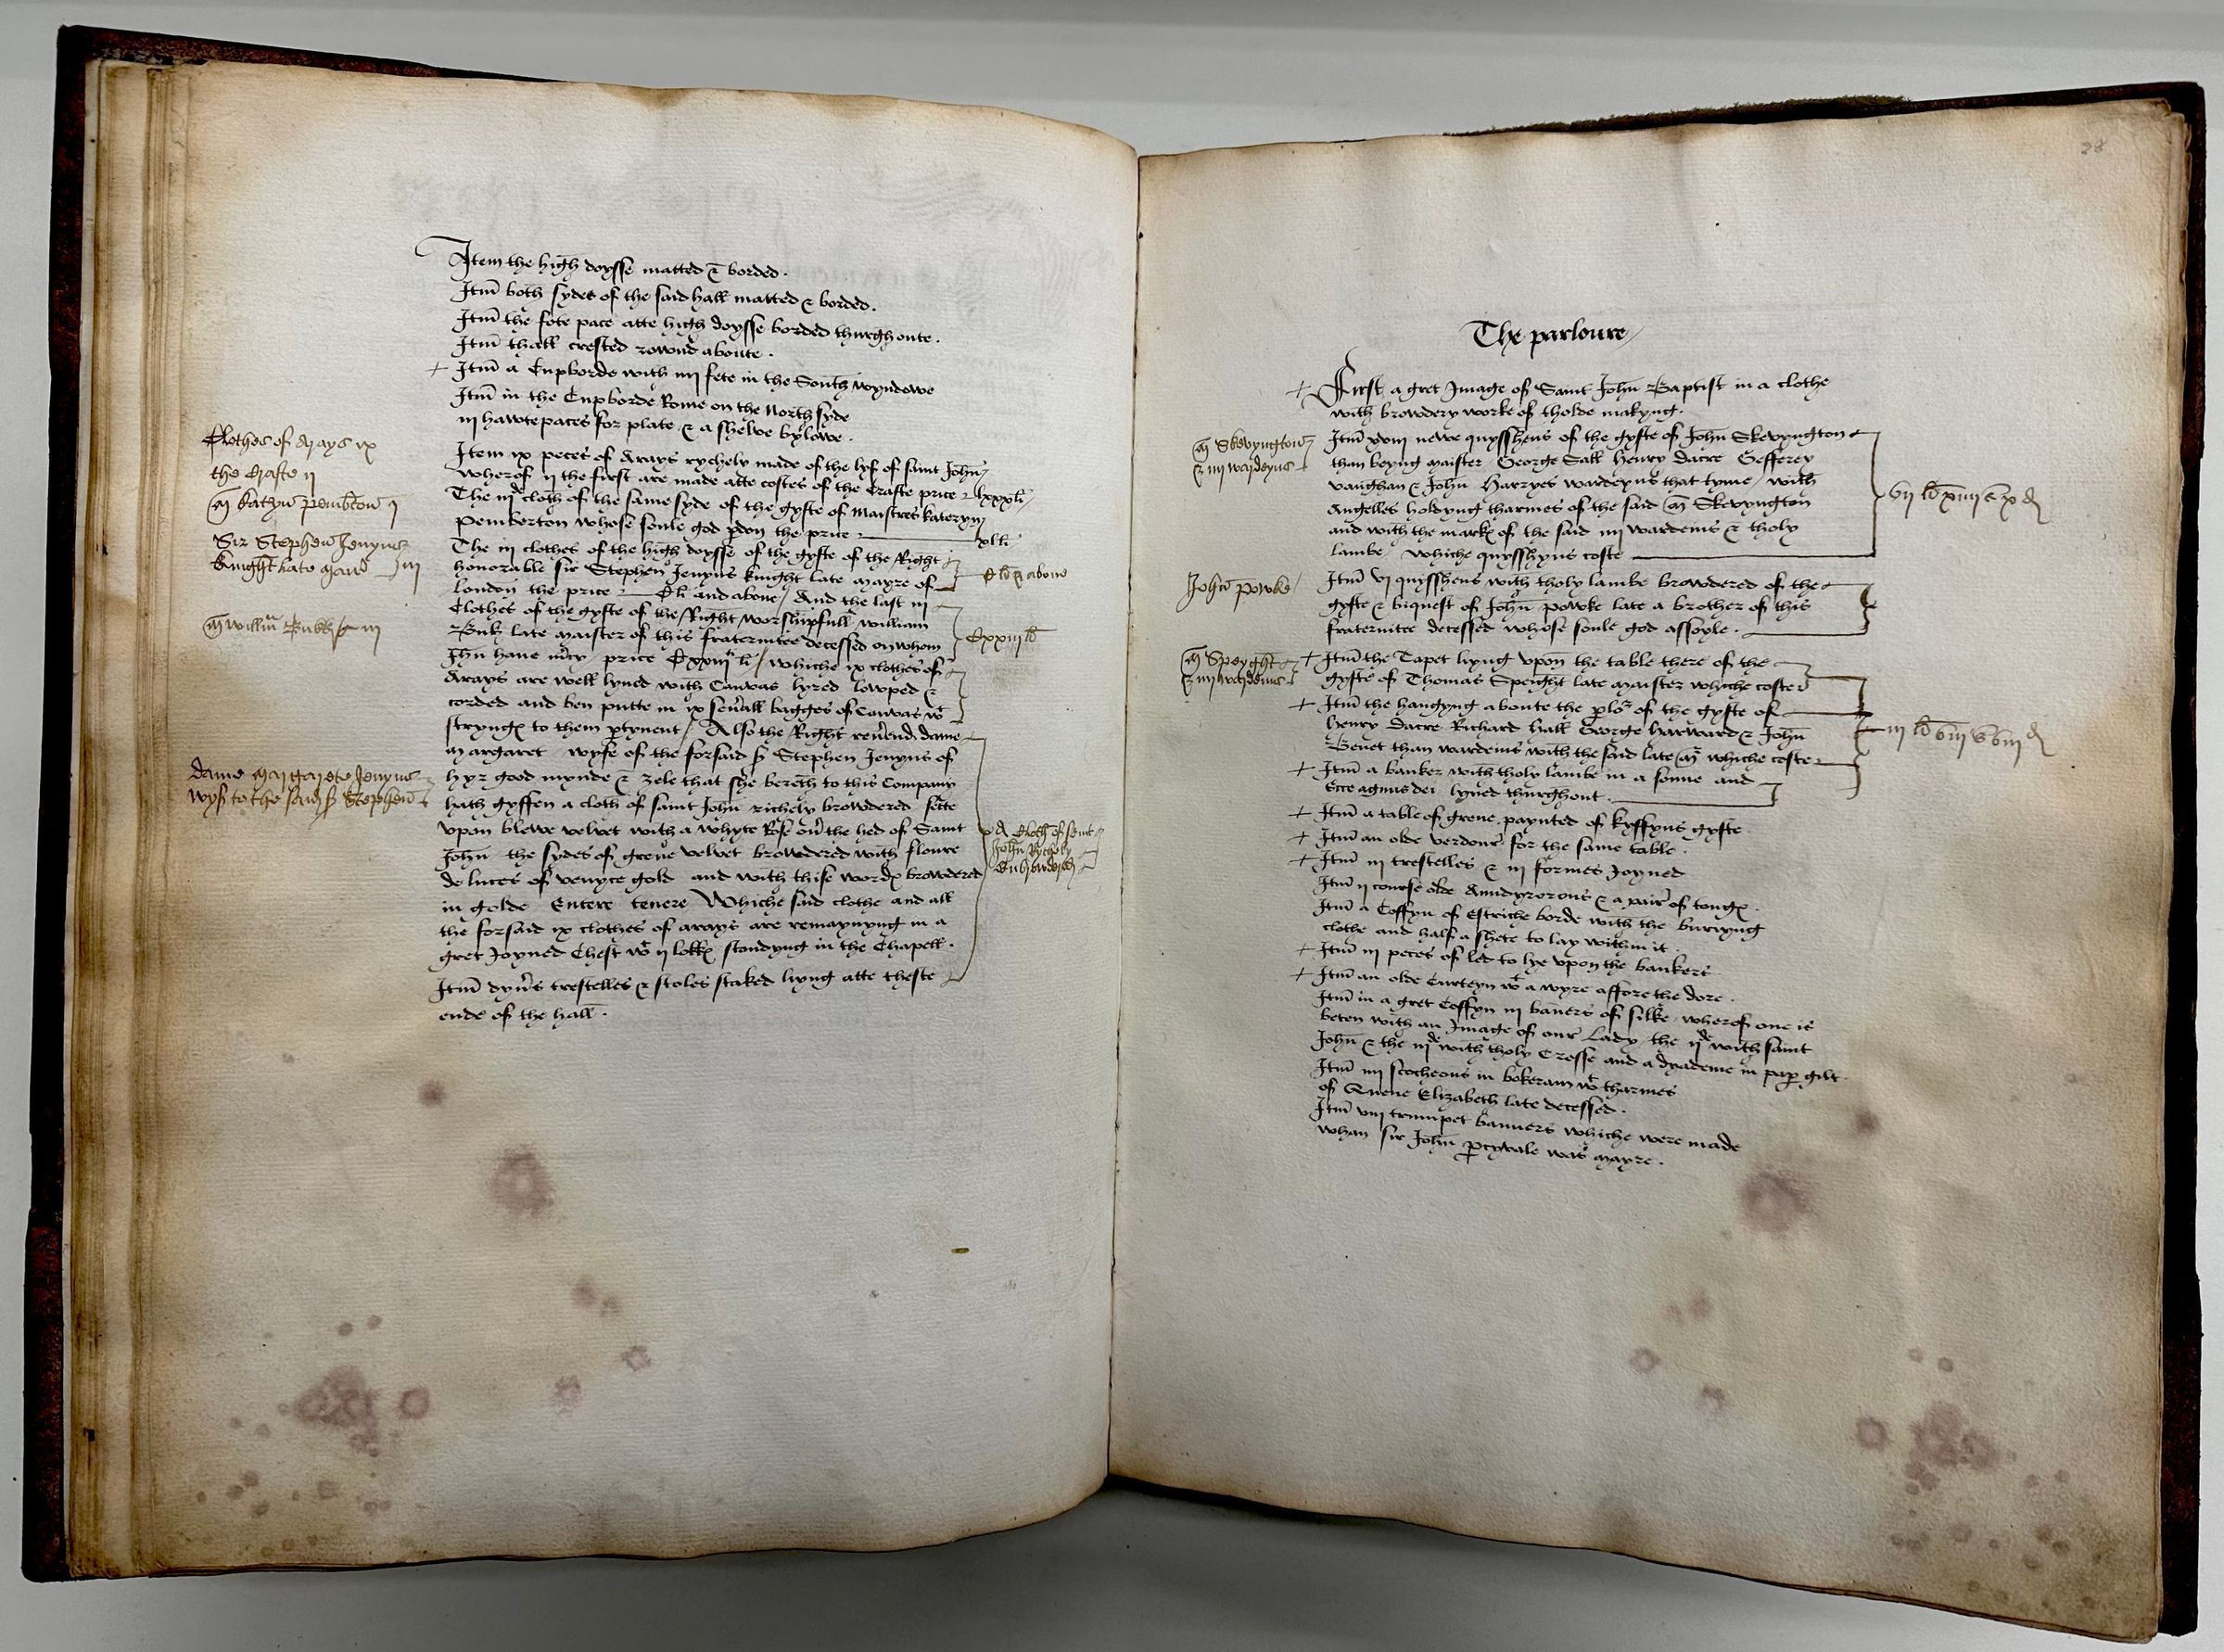 Item the high doysse matted & borded.
Itm both sydes of the said hall matted & borded.
Itm the fote pace atte high doysse borded thurghoute.
Itm thall crested rownd aboute.
+ Itm a Cupborde with iiij fete in the South wyndowe
Itm in the Cupborde Rome on the North syde
iij hawtepaces for plate & a shelve bylowe.
Clothes of Arays ix
the Crafte ij
Item ix peces of Arays rychely made of the lyf of saint John
wherof ij the first are made atte costes of the Crafte price lxxx li
The iijde cloth of the same syde of the gyfte of maistres kateryn
Pemberton whose soule god pdon the price xl li
M Katyn Pembton j
The iij clothes of the high doysse of the gyfte of the Right
honorable sir Stephen Jenyns knight late mayre of
london the price C li and above / And the last iij
Sir Stephen Jenyns
knyght late mair iij
C li & above
Clothes of the gyfte of the Right worshipfull william
Buk late maister of this fraternitee decessed on whom
Jhu have mcy price Cxxiij li / whiche ix clothes of
M Willm Bukk iij
Cxxiij li
Arays are well lyned with Canvas lyred lowped &
corded and ben putte in ix sevall bagges of Canvas wt
stryngs to them ptynent / Also the Right revend dame
Margaret wyfe of the forsaid sr Stephen Jenyns of
hyr good mynde & zele that she bereth to this Company
hath gyffen a cloth of saint John richely browdered sette
dame Margarete Jenyns
wyf to the said sr Stephen
upon blewe velvet with a whyte Rose ovr the hed of Saint
John the sydes of grene velvet browdered with floure
de luces of venyce gold and with thise words browdered
A Cloth of seint
John Rychely
Enbrowdered
in golde Entere tenere Whiche said clothe and all
the forsaid ix clothes of arays are remaynyng in a
gret Joyned Chest wt ij lokks stondyng in the Chapell.
Itm dyvs trestelles & stoles staked lying atte theste
ende of the hall.
28
The parloure
+ First a gret Image of Saint John Baptist in a clothe
with browdery worke of tholde makyng.
M Skevyngton
& iiij wardeyns
Itm xviij newe quysshens of the gyfte of John Skevyngton
than beyng maister George Sall Henry Dacre Gefferey
vaughan & John Harryes wardeyns that tyme with
Angelles holdyng tharmes of the said M Skevyngton
and with the marks of the said iiij wardenis & tholy
lambe whiche quysshyns coste
vij li xiiij s x d
John Powke
Itm vj quysshens with tholy lambe browdered of the
gyfte & biquest of John Powke late a brother of this
fraternitee decessed whose soule god assoyle.
M Speyght
& iiij wardens
+ Itm the Tapet liyng upon the table there of the
gyfte of Thomas Speight late maister whiche costed
+ Itm the hangyng aboute the plor of the gyfte of
henry Dacre Richard Hall George harward & John
Benet than wardenis with the said late Mr whiche coste
iij li viij s viij d
+ Itm a banker with tholy lambe in a sonne and
Ecce agnus dei lyned thurghout.
+ Itm a table of grene paynted of kyffyns gyfte
+ Itm an olde verdour for the same table.
+ Itm iij trestelles & iij formes Joyned
Itm ij course olde Aundyrorons & a pair of tongs.
Itm a Coffyn of estriche borde with the buryyng
clothe and half a shete to lay within it.
+ Itm iij peces of led to lye upon the bankers
+ Itm an olde Curteyn wt a wyre affore the dore.
Itm in a gret Coffyn iij baners of silke wherof one is
beten with an Image of our Lady the ijde with saint
John & the iijde with tholy Crosse and a dyademe in pap gilt.
Itm iiij scocheons in bokeram wt tharmes
of Quene Elizabeth late decessed.
Itm viij trumpet banners whiche were made
whan sir John pcyvale was mayre.